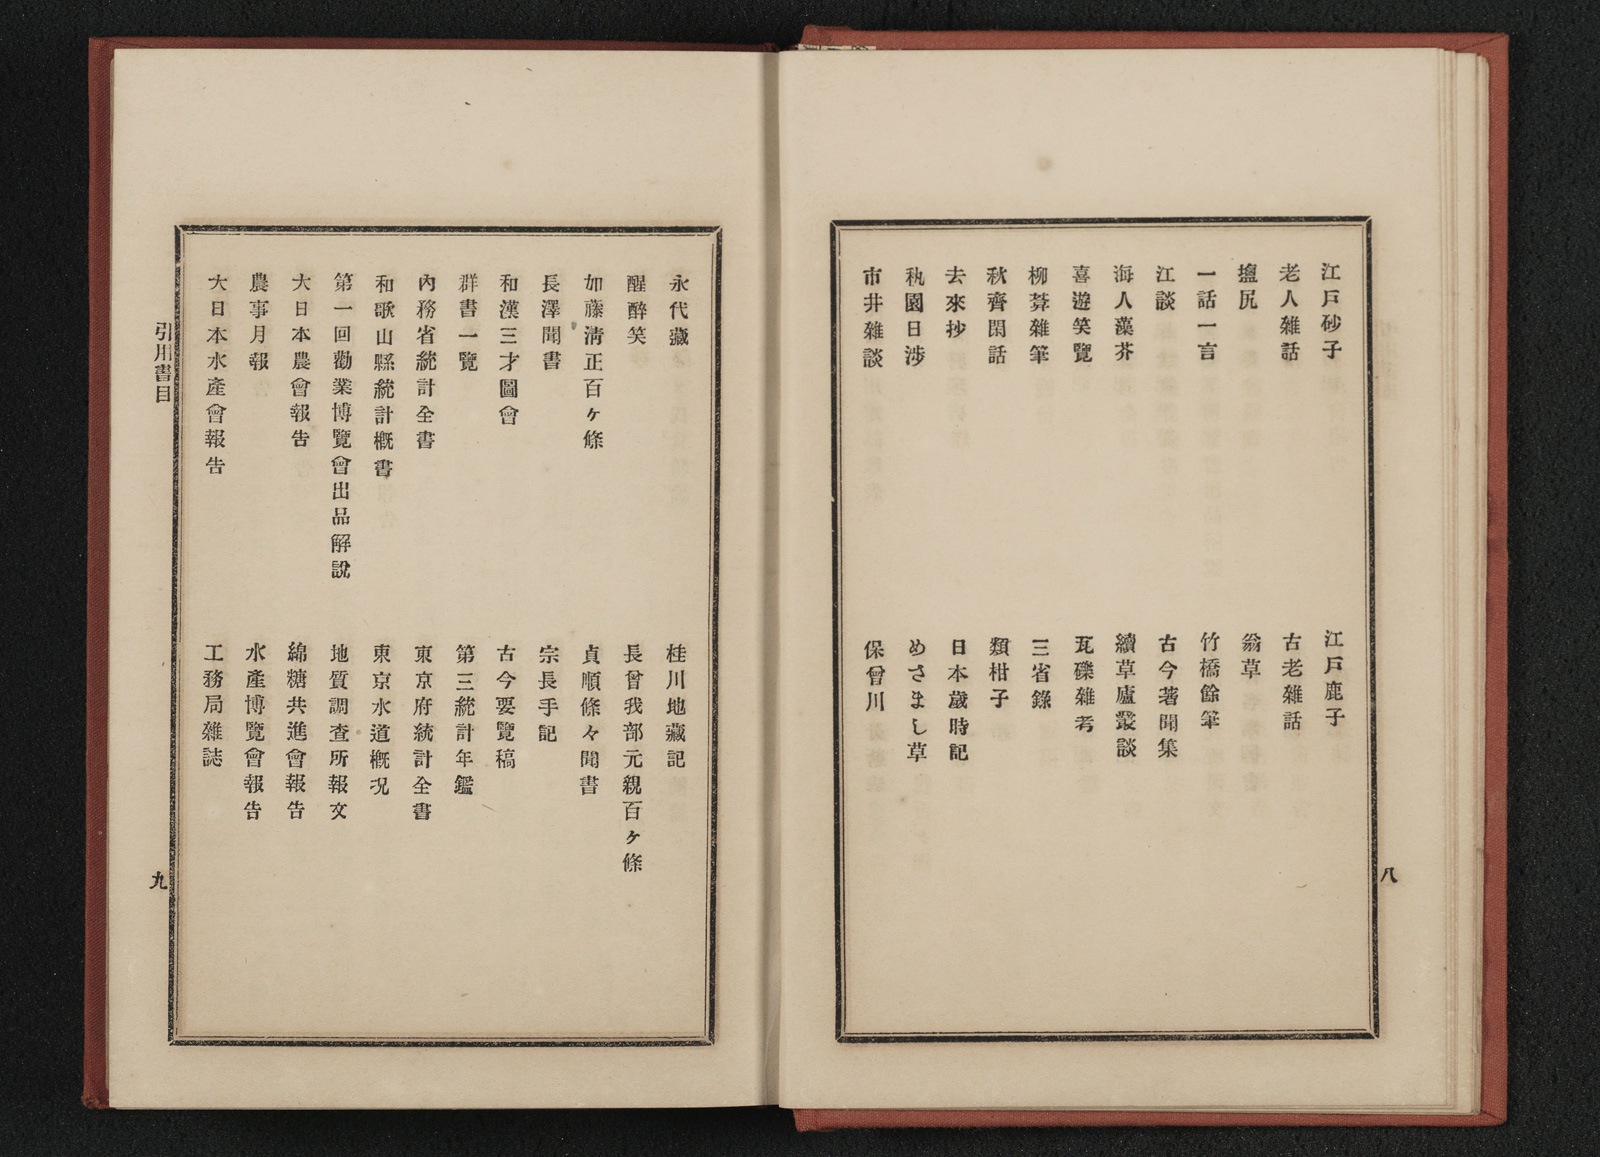 江戸砂子　江戸鹿子
老人雜話　古老雜話
塩尻　翁草
一話一言　竹橋餘筆
江談　古今著聞集
海人藻芥　續草廬叢談
喜遊笑覽　瓦礫雜考
柳葊雜筆　三省錄
秋齊閑話　類柑子
去來抄　日本歲時記
秇園日渉　めさまし草
市井雜談　保曾川
八
永代藏　桂川地藏記
醒醉笑　長曾我部元親百ヶ條
如藤淸正百ヶ條　貞順條々聞書
長澤聞書　宗長手記
和漢三才圖會　古今要覽稿
群書一覽　第三統計年鑑
內務省統計全書　東京府統計全書
和歌山縣統計槪書　東京水道槪况
第一回勸業博覽會出品解說　地質調査所報文
大日本農會報告　綿糖共進會報告
農事月報　水產博覽會報告
大日本水產會報告　工務局雜誌
引用書目
九